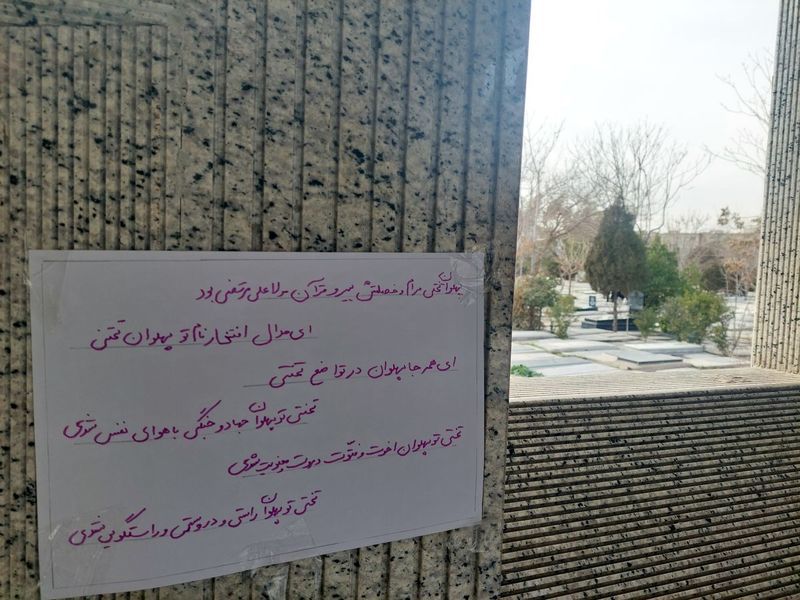 پهلوان تختی مرام و خصلتش پیرو قرآن مولا علی مرتضی بود
ای مدال افتخار نام تو پهلوان تختی
ای همه جا پهلوان در تواضع تختی
تختی تو پهلوان جهاد و جنگی با هوای نفس شدی
تختی تو پهلوان اخوت و فتوت شدی
تختی تو پهلوان راستی و درستی و راستگویی شدی